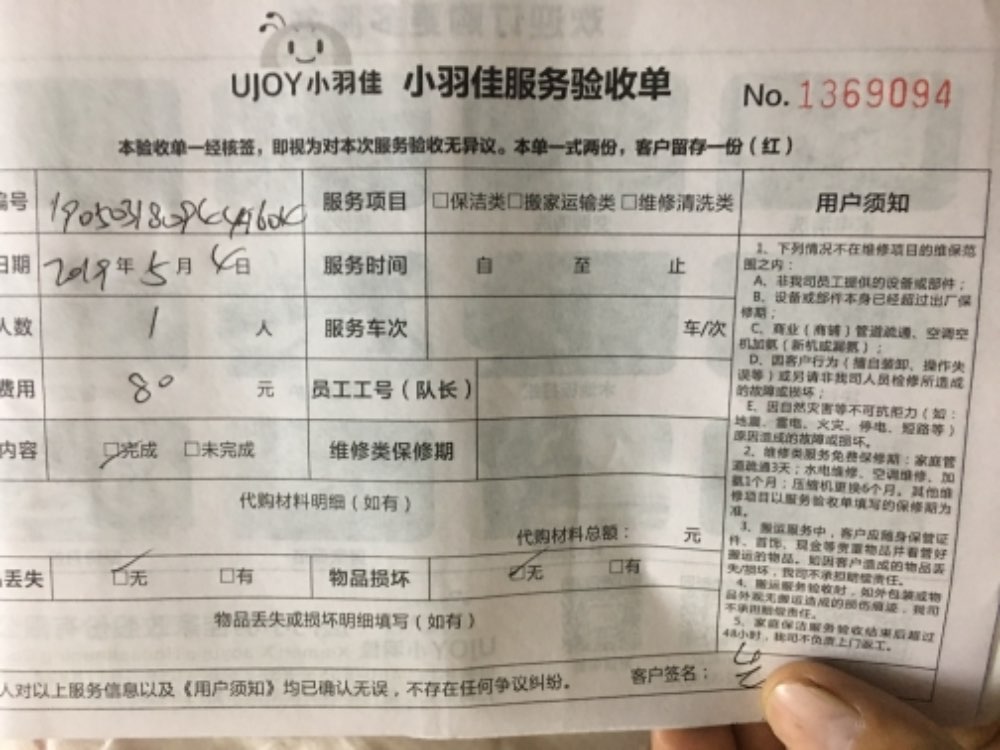 UJOY小羽佳 小羽佳服务验收单 No. 1369094
本验收单一经核签，即视为对本次服务验收无异议。本单一式两份，客户留存一份（红）
编号 服务项目 □保洁类□搬家运输类□维修清洗类 用户须知
日期 2019年5月4日 服务时间 自 至 止
人数 1 人 服务车次 车/次
费用 80 元 员工工号（队长）
内容 □完成 □未完成 维修类保修期
代购材料明细（如有）
代购材料总额： 元
丢失 □无 □有 物品损坏 □无 □有
物品丢失或损坏明细填写（如有）
人对以上服务信息以及《用户须知》均已确认无误，不存在任何争议纠纷。 客户签名：
1、下列情况不在维修项目的维保范
围之内：
A、非我司员工提供的设备或部件；
B、设备或部件本身已经超过出厂保
修期；
C、商业（商铺）管道疏通、空调空
机加氨（新机或漏氨）；
D、因客户行为（擅自装卸、操作失
误等）或另请非我司人员检修所造成
的故障或损坏；
E、因自然灾害等不可抗拒力（如：
地震、雷电、火灾、停电、短路等）
原因造成的故障或损坏。
2、维修类服务免费保修期：家庭管
道疏通3天；水电维修、空调维修、加
氨1个月；压缩机更换6个月。其他维
修项目以服务验收单填写的保修期为
准。
3、搬运服务中，客户应随身保管证
件、首饰、现金等贵重物品并看管好
搬运的物品。如因客户造成的物品丢
失/损坏，我司不承担赔偿责任。
4、搬运服务验收时，如外包装或物
品外观无搬运造成的损伤痕迹，我司
不承担赔偿责任。
5、家庭保洁服务验收结束后超过
48小时，我司不负责上门返工。